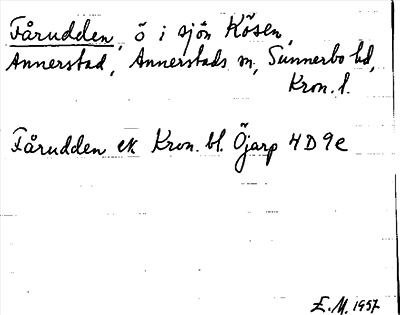 Fårudden, ö i sjön Kösen,
Annerstad, Annerstads sn, Sunnerbo hd,
Kron. l.
Fårudden ek Kron. bl. Öjarp 4D9e
E.M. 1957